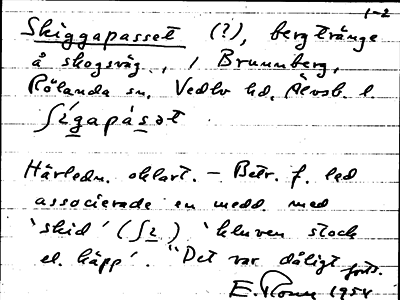 1-2
Skiggapasset (?), bergtränge
å skogsväg, i Brunnberg,
Rölanda sn. Vedbo hd. Älvsb. l.
ʃi̱gapás̱ət
Härledn. oklart. – Betr. f. led
associerade en medd. med
'skid' (ʃi̱) 'kluven stock
el. käpp'. "Det var dåligt forts.
E. Rom 1954